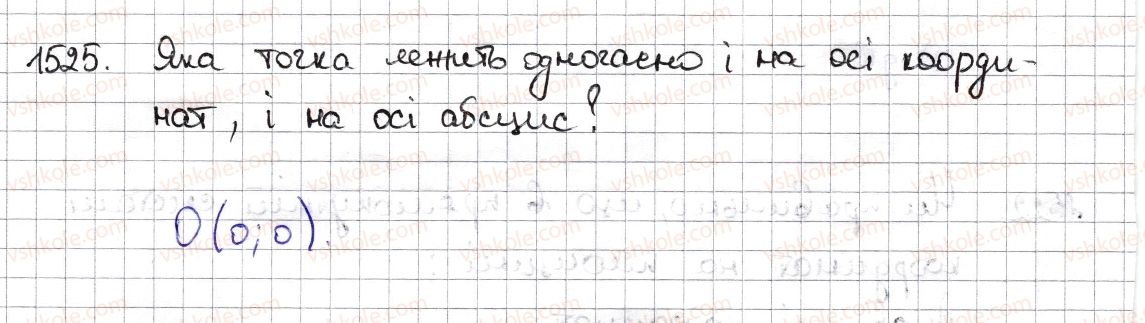 1525. Яка точка лежить одночасно і на осі коорди-
нат, і на осі абсцис?
O(0;0).